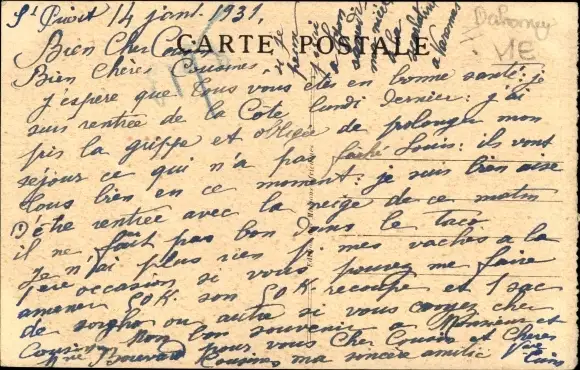 St Privat 14 janv. 1931,
CARTE POSTALE
Dahomey
VE
Bien Cher Cousin
Bien Chères Cousines
j'espère que tous vous êtes en bonne santé: je
suis rentrée de la Cote lundi dernier: j'ai
pis la grippe et obligée de prolonger mon
séjour ce qui n'a pas faché Louis: ils vont
tous bien en ce moment: je suis bien aise
D'être rentrée avec la neige de ce matin
il ne fait pas bon dans le taco
Je n'ai plus rien p. mes vaches a la
1ère occasion si vous pouvez me faire
amener 50K. son 50K. recoupe et 1 sac
de sorgho ou autre si vous croyez cher
Cousin Mon bon souvenir a Monsieur et
Mme Bouvard pour vous Cher Cousin et Chères
Cousines ma sincère amitié